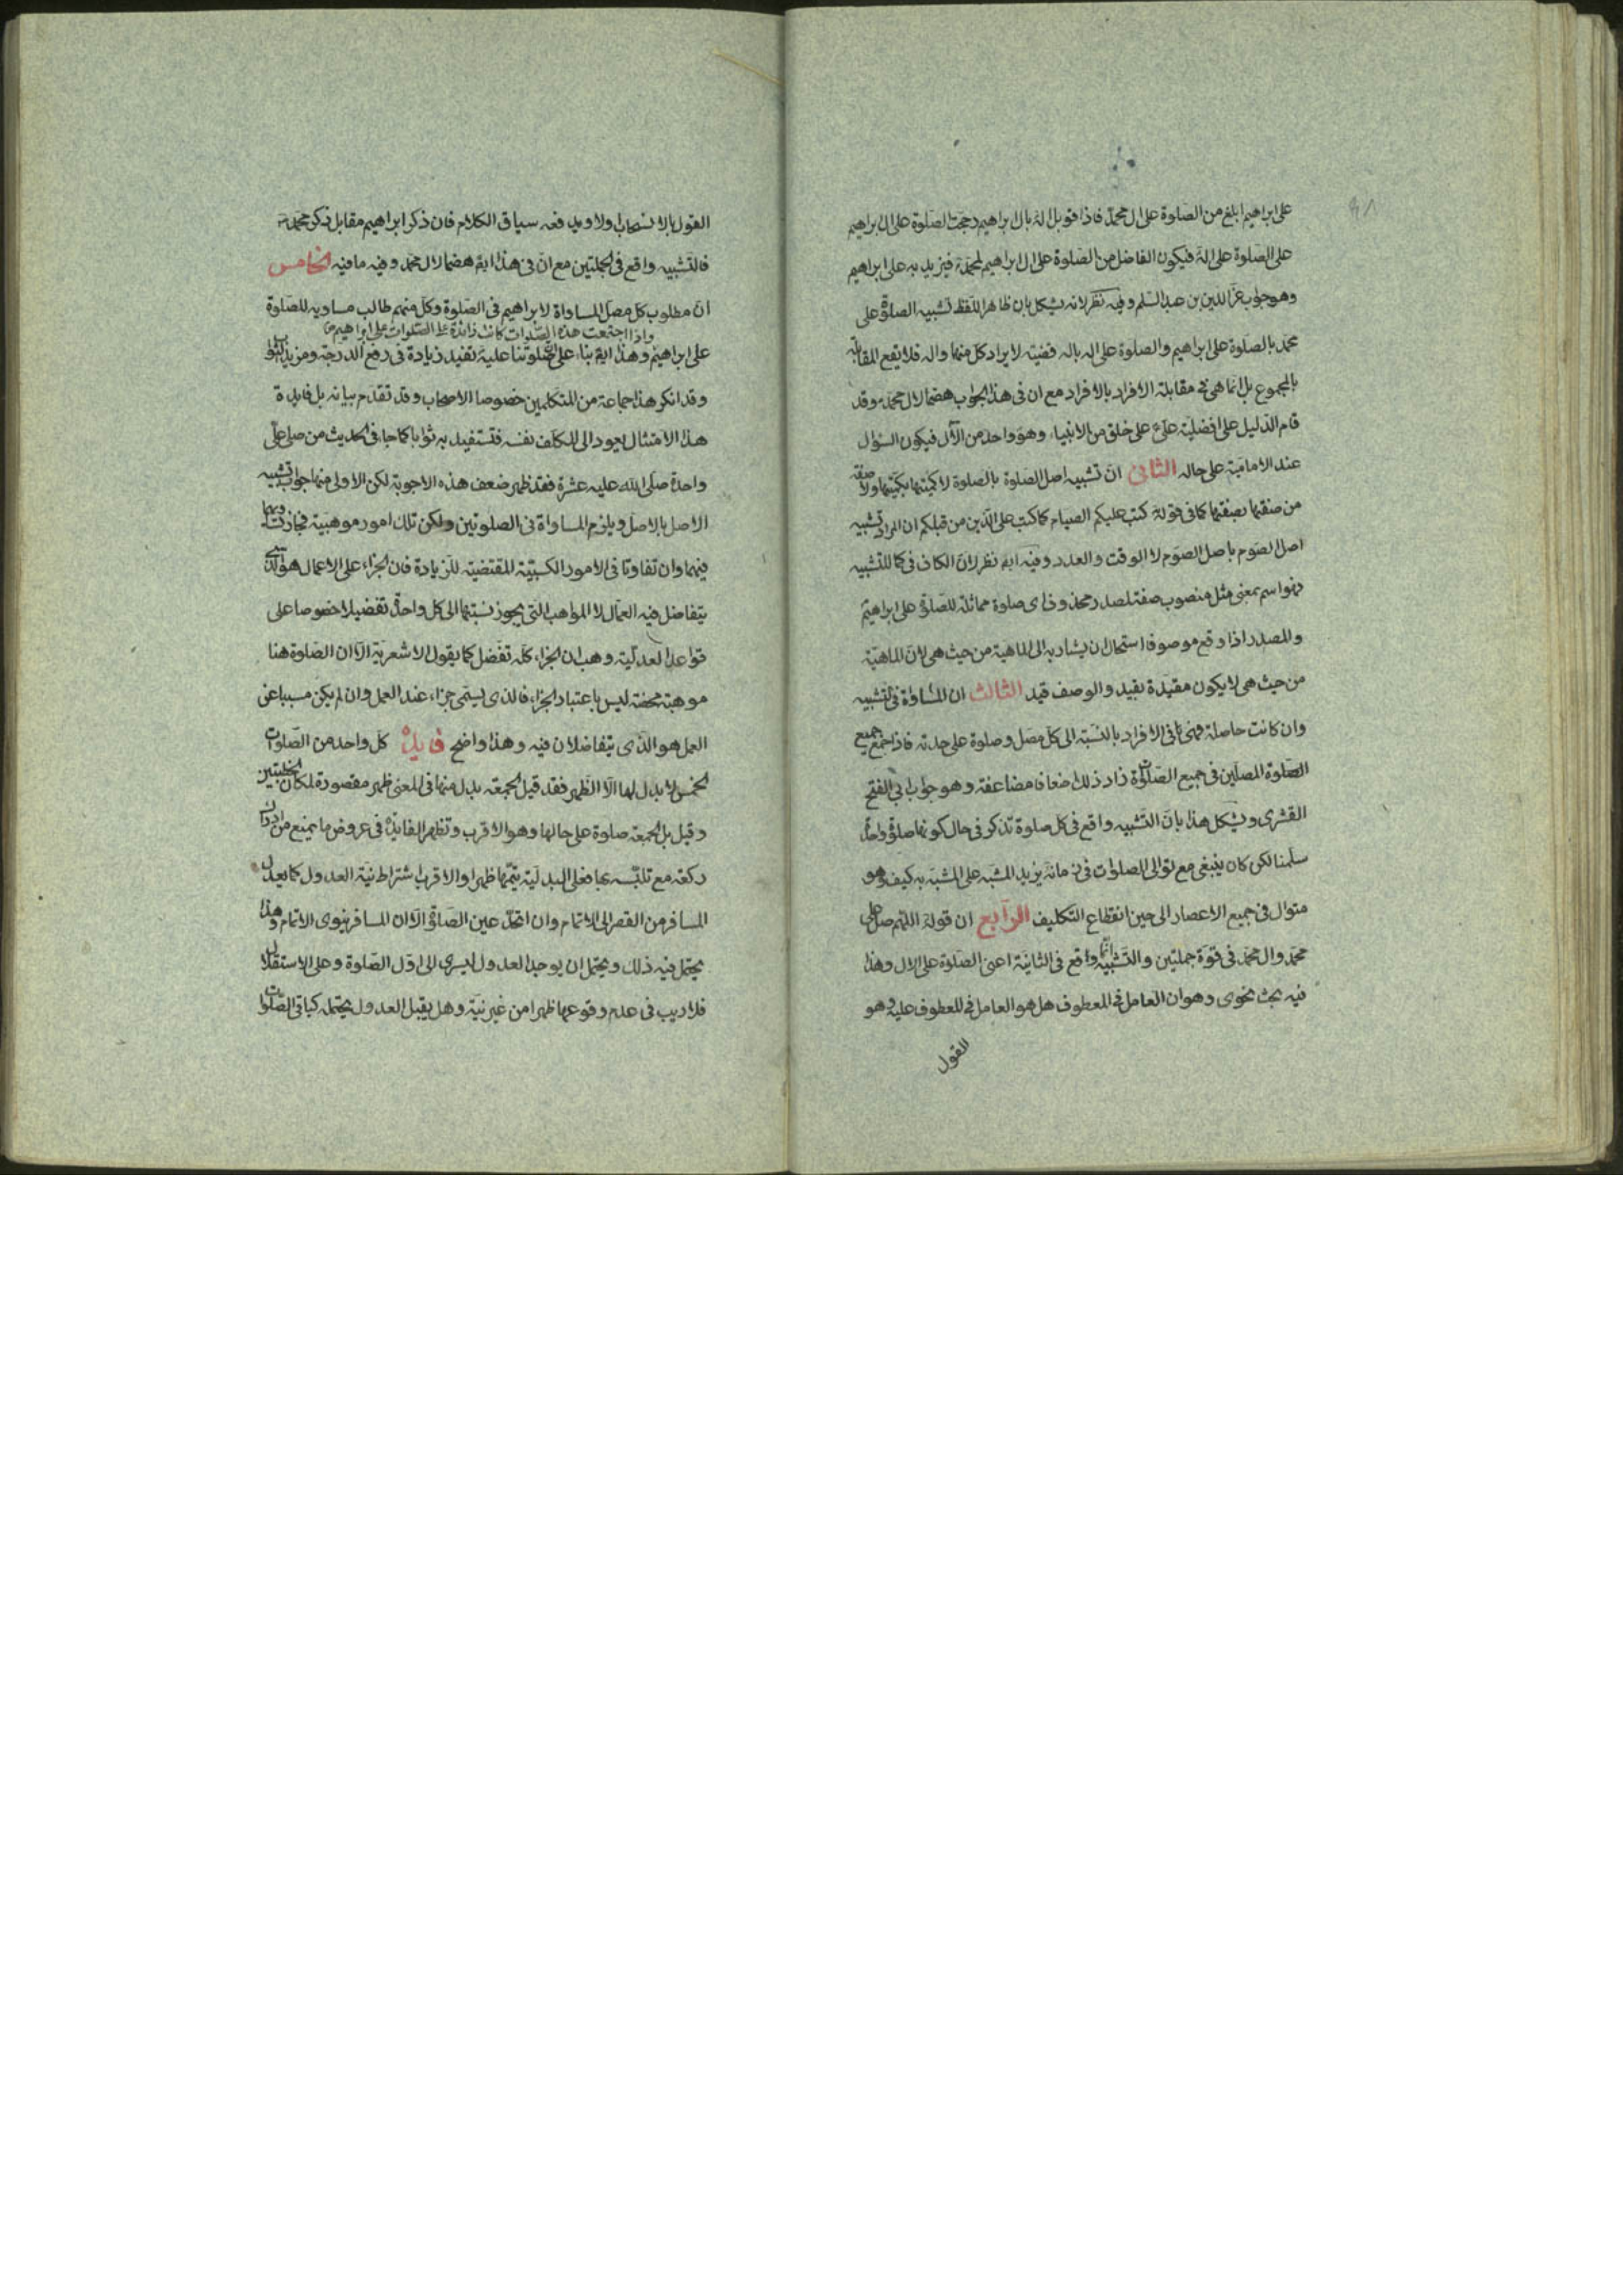 على ابراهيم ابلغ من الصلوة على ال محمد فاذا قوبل اله بال ابراهيم رجحت الصلوة على ال ابراهيم
على الصلوة على اله فيكون الفاضل من الصلوة على ال ابراهيم لمحمد فيزيد به على ابراهيم
وهو جواب عز الدين بن عبد السلم وفيه نظر لانه يشكل بان ظاهر اللفظ تشبيه الصلوة على
محمد بالصلوة على ابراهيم والصلوة على اله باله قضيته لايراد كل منهما واله فلا يقع المقابلة
بالمجموع بل انما هى فى مقابلة الافراد بالافراد مع ان فى هذا الجواب هضما لال محمد وقد
قام الدليل على افضلية على على خلق من الانبياء وهو واحد من الآل فيكون السؤال
عند الامامية على حاله الثانى ان تشبيه اصل الصلوة بالصلوة لا كميتها بكميتها ولا صفة
من صفتها بصفتها كما فى قوله كتب عليكم الصيام كما كتب على الذين من قبلكم ان المراد تشبيه
اصل الصوم باصل الصوم لا الوقت والعدد وفيه ايضا نظر لان الكاف فى كما للتشبيه
وهو اسم بمعنى مثل منصوب صفة لمصدر محذوف اى صلوة مماثلة للصلوة على ابراهيم
والمصدر اذا وقع موصوفا استحال ان يشار به الى الماهية من حيث هى لان الماهية
من حيث هى لا يكون مقيدة بقيد والوصف قيد الثالث ان المساواة فى تشبيه
وان كانت حاصلة فهى فى الافراد بالنسبة الى كل مصل وصلوة على حدته فاذا جمع جميع
الصلوة المصلين فى جميع الصلوة زاد ذلك اضعافا مضاعفة وهو جواب ابى الفتح
القشرى ويشكل هذا بان التشبيه واقع فى كل صلوة تذكر فى حال كونها صلوة واحدة
سلمنا لكن كان ينبغى مع توالى الصلوات فى زمانه يزيد المشبه على المشبه به كيف وهو
متوال فى جميع الاعصار الى حين انقطاع التكليف الرابع ان قوله اللهم صل على
محمد وال محمد فى قوة جملتين والتشبيه انما وقع فى الثانية اعنى الصلوة على الال وهذا
فيه بحث نحوى وهو ان العامل فى المعطوف هل هو العامل فى المعطوف عليه وهو
القول
القول بالانسحاب اولا ويدفعه سياق الكلام فان ذكر ابراهيم مقابل ذكر محمد
فالتشبيه واقع فى الجملتين مع ان فى هذا ايضا هضما لال محمد وفيه ما فيه الخامس
ان مطلوب كل مصل المساواة لابراهيم فى الصلوة وكل منهم طالب مساوية للصلوة
واذا اجتمعت هذه الصلوات كانت زائدة على الصلوات على ابراهيم
على ابراهيم وهذا ايضا بناء على ان صلوتنا عليه تفيد زيادة فى رفع الدرجة ومزيد الثواب
وقد انكر هذا جماعة من المتكلمين خصوصا الاصحاب وقد تقدم بيانه بل فايدة
هذا الامتثال يعود الى المكلف نفسه فتستفيد به ثوابا كما جاء فى الحديث من صلى على
واحدة صلى الله عليه عشرة فقد ظهر ضعف هذه الاجوبة لكن الاولى منها جواب تشبيه
الاصل بالاصل ويلزم المساواة فى الصلوتين ولكن تلك امور موهبية فجاز تساويهما
فيهما وان تفاوتا فى الامور الكسبية المقتضية للزيادة فان الجزاء على الاعمال هو الذى
يتفاضل فيه العمال لا المواهب التى يجوز نسبتها الى كل واحد تفضيلا خصوصا على
قواعد العدلية وهب ان الجزاء كله تفضل كما يقول الاشعرية الا ان الصلوة هنا
موهبة محضة ليس باعتبار الجزاء فالذى يسمى جزاء عند العمل وان لم يكن مسببا عن
العمل هو الذى يتفاضلان فيه وهذا واضح فايدة كل واحد من الصلوات
الخمس لا بدل لها الا الظهر فقد قيل الجمعة بدل منها فى المعنى ظهر مقصورة لمكان الخطبتين
وقيل بل الجمعة صلوة على حالها وهو الاقرب وتظهر الفايدة فى عروض ما يمنع من ادراك
ركعة مع تلبسه بها فعلى البدلية يتمها ظهرا والاقرب اشتراط نية العدول كما يعدل
المسافر من القصر الى الاتمام وان اتحد عين الصلوة الا ان المسافر ينوى الاتمام وهذا
يحتمل فيه ذلك ويحتمل ان يوجد العدول ليسرى الى اول الصلوة وعلى الاستقلال
فلا ريب فى عدم وقوعها ظهرا من غير نية وهل يقبل العدول يحتمله كباقى الصلوات